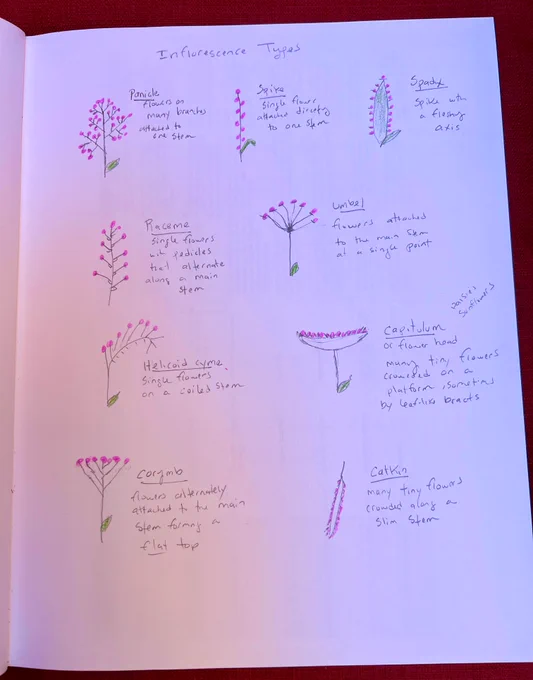 Influrescence Types
Panicle
flowers on
many branches
attached to
one stem
Spike
single flower
attached directly
to one stem
Spadix
Spike with
a fleshy
axis
Raceme
single flowers
with pedicles
that alternate
along a main
stem
Umbel
flowers attached
to the main stem
at a single point
Helicoid cyme
single flowers
on a coiled stem
Daisies
Sunflowers
Capitulum
or flower head
many tiny flowers
crowded on a
platform,
by leaflike bracts
Corymb
flowers alternately
attached to the main
stem forming a
flat top
Catkin
many tiny flowers
crowded along a
slim stem